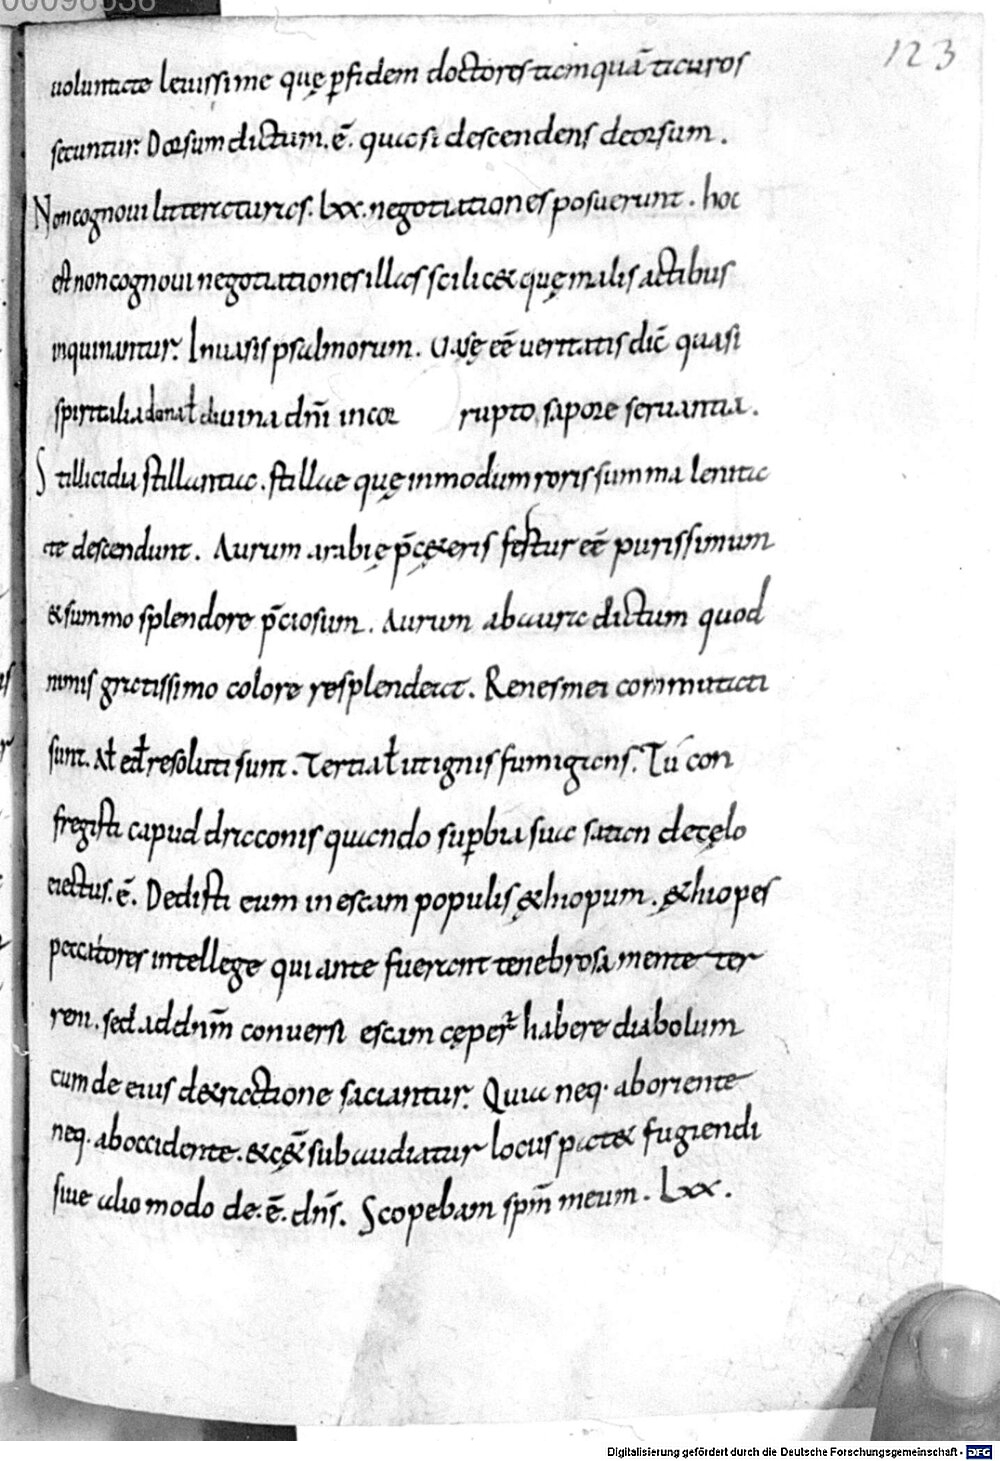 00096556
123
uoluntate leuissime quę ꝑfidem doctores tamquā tauros
secuntur. Dorsum dictum .ē. quasi descendens deorsum.
Non cognoui litteraturas. lxx. negotiationes posuerunt. hoc
est non cognoui negotiationes illas scilic& quę malis actibus
inquinantur. In uasis psalmorum. Uasę eē ueritatis dic̄ quasi
spiritalia dona ł diuina dnī incor rupto sapore seruantia.
Stillicidia stillantia. stillae quę inmodum roris summa lenita
te descendunt. Aurum arabię p̄ cęteris fertur eē purissimum
& summo splendore p̄ciosum. Aurum ab aura dictum quod
nimis gratissimo colore resplendeat. Renes mei commutati
sunt. Ał ed̄ resoluti sunt. Tertia ł ut ignis fumigans. Tū con
fregisti capud draconis quando suꝑbia sua satan de cęlo
eiectus .ē. Dedisti eum in escam populis ę&hiopum. ę&hiopes
peccatores intellege qui ante fuerant tenebrosa mente ter
reni. sed ad dnm̄ conuersi escam cęper̄ habere diabolum
cum de eius detractione saciantur. Quia neq. ab oriente
neq. ab occidente. & cę& subaudiatur locus pat& fugiendi
siue alio modo de .ē. dn̄s. Scopebam spm̄ meum. Lxx.
Digitalisierung gefördert durch die Deutsche Forschungsgemeinschaft - DFG